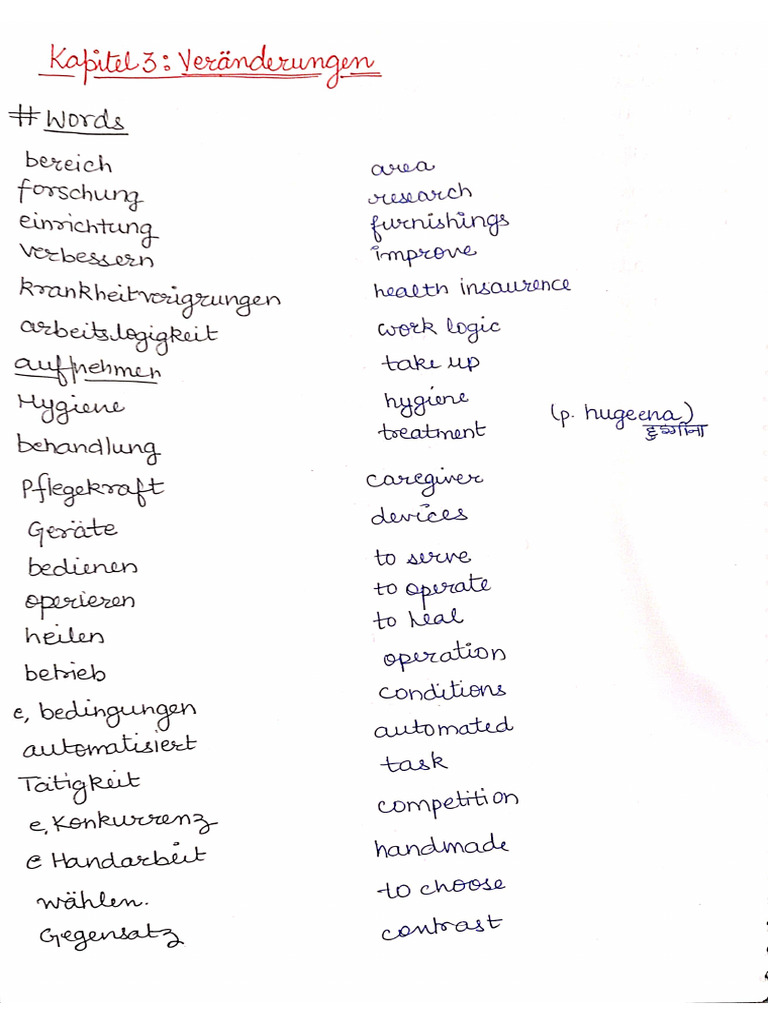 Kapitel 3: Veränderungen
# Words
bereich area
forschung research
einrichtung furnishings
verbessern improve
krankheitvorigrungen health insaurence
arbeitslogigkeit work logic
aufnehmen take up
Hygiene hygiene (p. hugeena)
हुग्गीना
behandlung treatment
Pflegekraft caregiver
Geräte devices
bedienen to serve
operieren to operate
heilen to heal
betrieb operation
e, bedingungen conditions
automatisiert automated
Tätigkeit task
e, Konkurrenz competition
e Handarbeit handmade
wählen. to choose
Gegensatz contrast